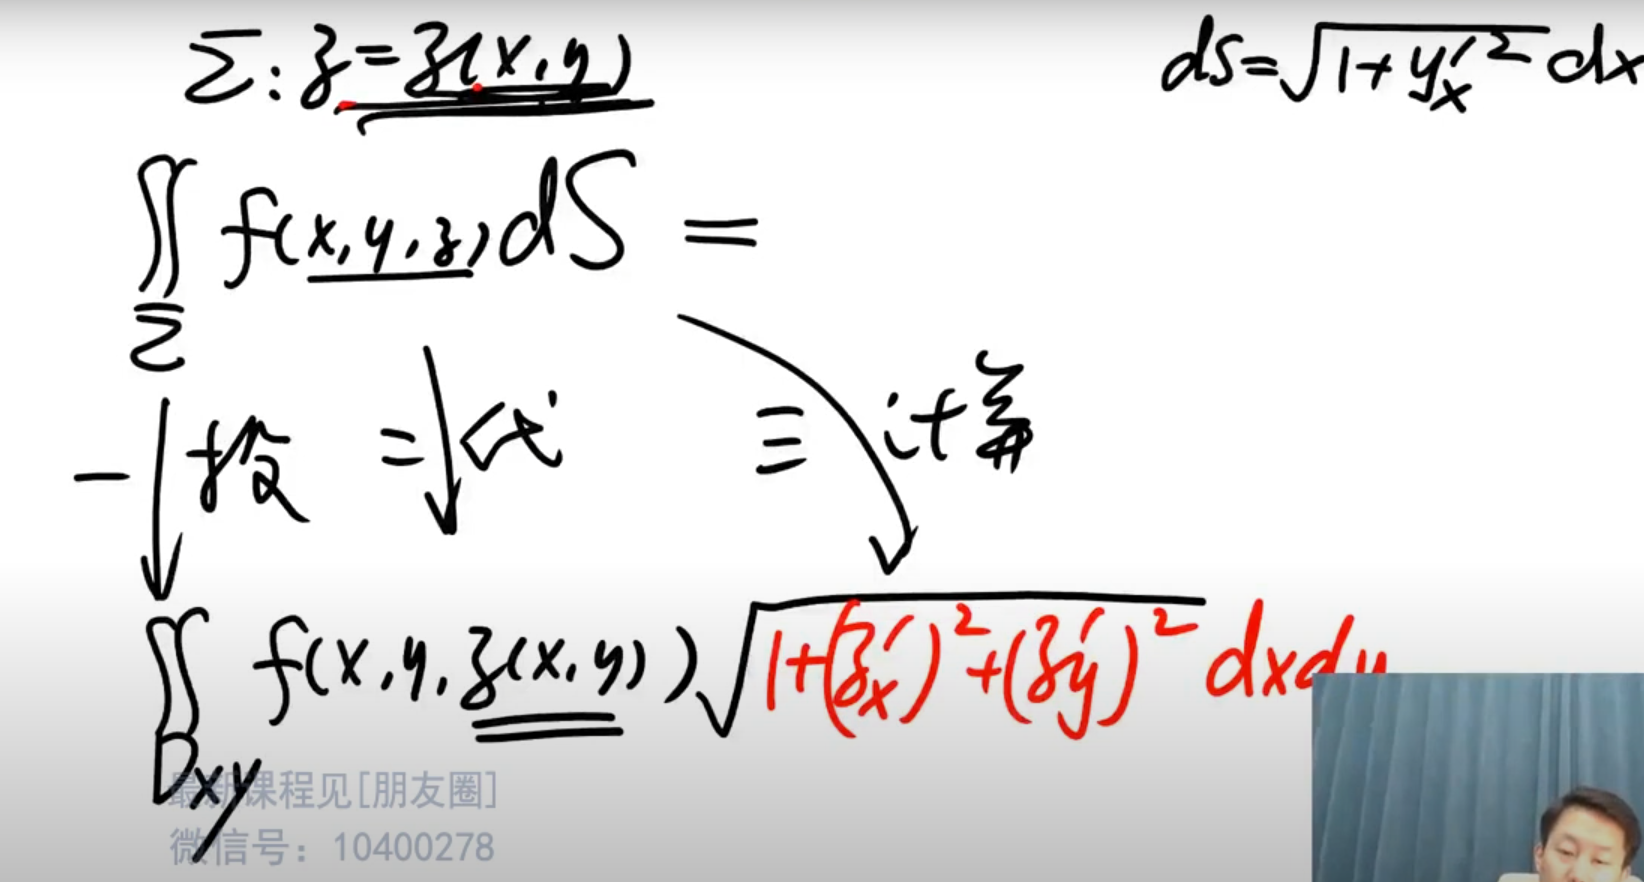 Σ: z=z(x,y)
ds=√(1+y'ₓ²) dx
∬_Σ f(x,y,z)dS =
一 投 二 代 三 计算
∬_Dxy f(x,y,z(x,y))√(1+(z'ₓ)²+(z'y)²) dxdy
最新课程见[朋友圈]
微信号：10400278